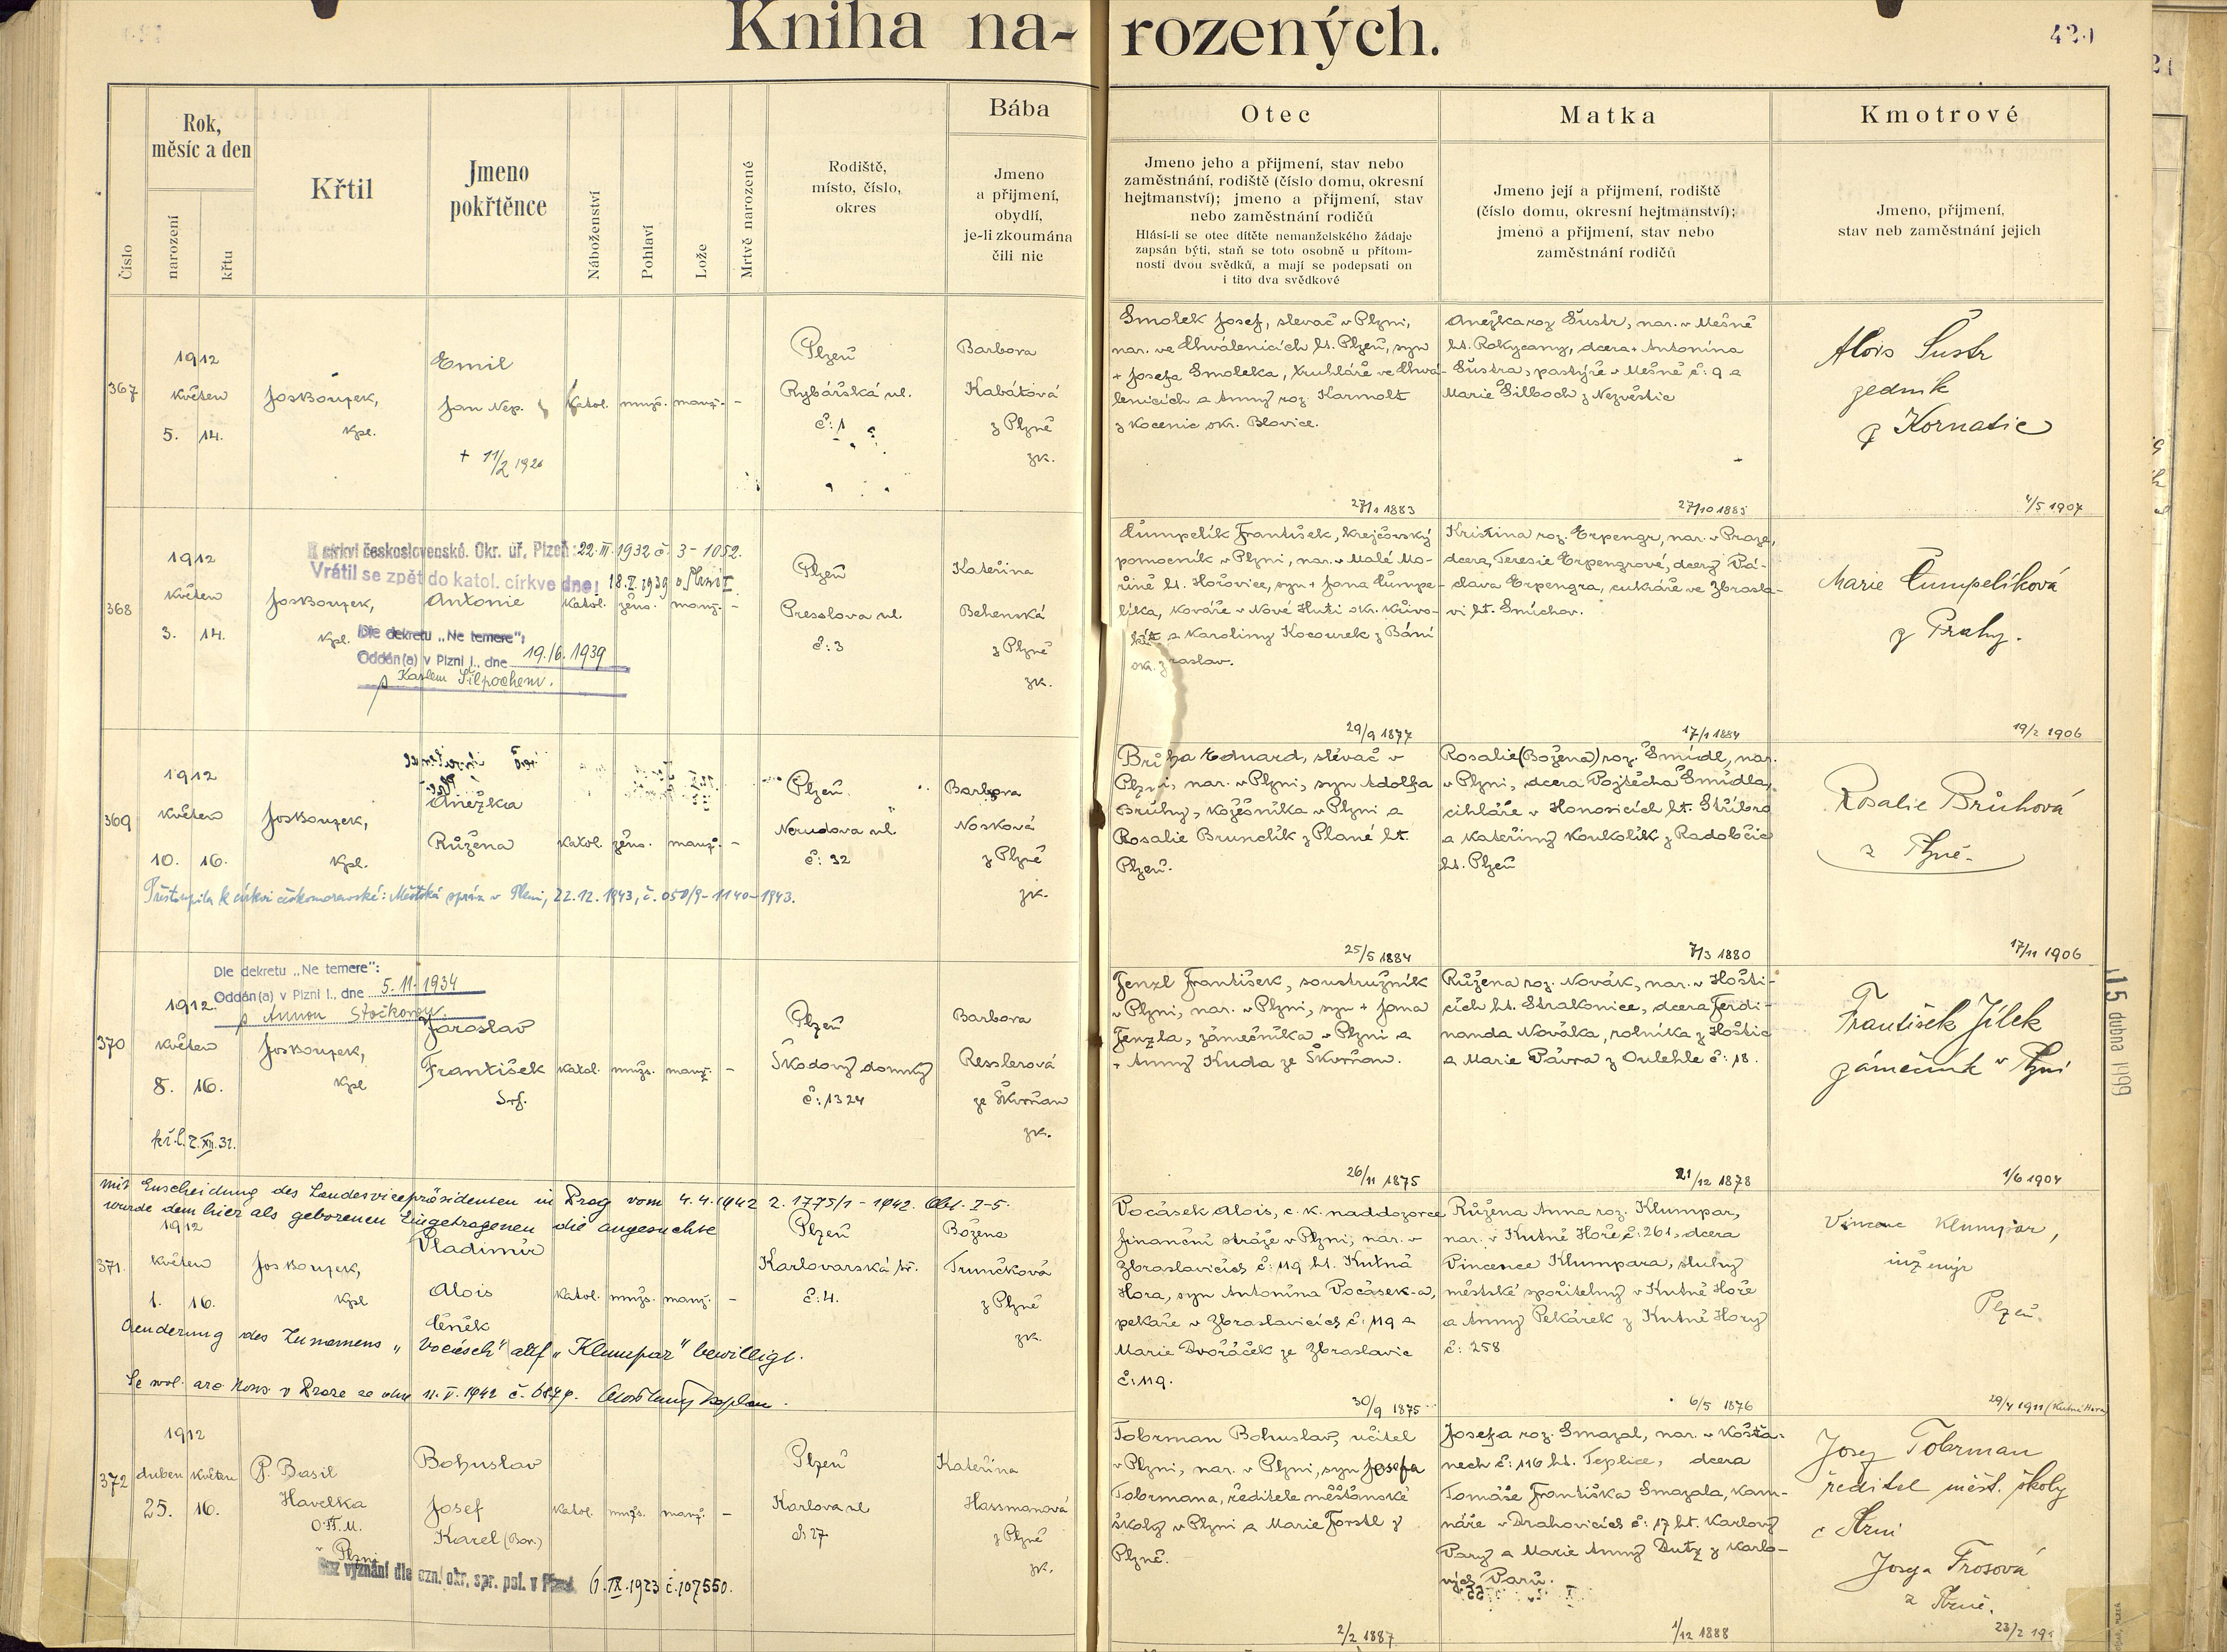 Kniha narozených.
420
Číslo
Rok, měsíc a den
narození
křtu
Křtil
Jmeno pokřtěnce
Náboženství
Pohlaví
Lože
Mrtvě narozené
Rodiště, místo, číslo, okres
Bába
Jmeno a přijmení, obydlí, je-li zkoumána čili nic
Otec
Jmeno jeho a přijmení, stav nebo
zaměstnání, rodiště (číslo domu, okresní
hejtmanství); jmeno a přijmení, stav
nebo zaměstnání rodičů
Hlásí-li se otec dítěte nemanželského žádaje
zapsán býti, staň se toto osobně u přítom-
nosti dvou svědků, a mají se podepsati on
i tito dva svědkové
Matka
Jmeno její a přijmení, rodiště
(číslo domu, okresní hejtmanství);
jmeno a přijmení, stav nebo
zaměstnání rodičů
Kmotrové
Jmeno, přijmení,
stav neb zaměstnání jejich
367
1912
květen
5. 14.
Jos Bouzek,
kpl.
Emil
Jan Nep.
+ 11/2 1926
katol. mužs. manž. -
Plzeň
Rybářská ul.
č: 1
Barbora
Kabátová
z Plzně
zk.
Smolek Josef, slevač v Plzni,
nar. ve Chválenicích ht. Plzeň, syn
+ Josefa Smoleka, truhláře ve Chvá-
lenicích a Anny roz. Karmolt
z Kocenic okr. Blovice.
27/1 1883
Anežka roz Šustr, nar. v Mešně
ht. Rokycany, dcera + Antonína
Šustra, pastýře v Mešně č: 9 a
Marie Silboch z Nezvěstic
27/10 1885
Alois Šustr
zedník
z Kornatic
4/5 1907
368
1912
květen
3. 14.
K církvi československé. Okr. úř. Plzeň: 22. III. 1932 č. 3-1052.
Vrátil se zpět do katol. církve dne: 18. V. 1939
Jos Bouzek,
kpl.
Antonie
katol. žens. manž. -
Dle dekretu „Ne temere":
Oddán(a) v Plzni I., dne 19./6. 1939
s Karlem Silpochem.
Plzeň
Presslova ul.
č: 3
Kateřina
Behenská
z Plzně
zk.
Čumpelík František, krejčovský
pomocník v Plzni, nar. v Malé Mo-
řině ht. Hořovice, syn + Jana Čumpe-
líka, kováře v Nové Huti okr. Křivo-
klát a Karoliny Kocourek z Bání
okr. Zbraslav.
29/9 1877
Kristina roz. Erpengr, nar. v Praze,
dcera Teresie Erpengrové, dcery Vá-
clava Erpengra, cukráře ve Zbrasla-
vi ht. Smíchov.
17/1 1884
Marie Čumpelíková
z Prahy.
19/2 1906
369
1912
květen
10. 16.
Jos Bouzek,
kpl.
Anežka
Růžena
katol. žens. manž. -
Plzeň
Nerudova ul.
č: 32
Barbora
Nosková
z Plzně
zk.
Přestoupila k církvi českomoravské: Městská správa v Plzni, 22. 12. 1943, č. 050/9-1140-1943.
Brůha Eduard, slévač v
Plzni, nar. v Plzni, syn Adolfa
Brůhy, kožešníka v Plzni a
Rosalie Brunclík z Plané ht.
Plzeň.
25/5 1884
Rosalie (Božena) roz. Šmídl, nar.
v Plzni, dcera Vojtěcha Šmídla,
cihláře v Honosicích ht. Stříbro
a Kateřiny Koukolík z Radobčic
ht. Plzeň
7/3 1880
Rosalie Brůhová
z Plzně.
17/11 1906
Dle dekretu „Ne temere":
Oddán(a) v Plzni I., dne 5. 11. 1934
s Annou Stočkovou.
370
1912
květen
8. 16.
Jos Bouzek,
kpl
Jaroslav
František
Srf.
katol. mužs. manž. -
kř. l. 2. XII. 31.
Plzeň
Škodovy domky
č: 1324
Barbora
Resslerová
ze Škvrňan
zk.
Fenzl František, soustružník
v Plzni, nar. v Plzni, syn + Jana
Fenzla, zámečníka v Plzni a
+ Anny Kuda ze Škvrňan.
26/11 1875
Růžena roz. Novák, nar. v Hošti-
cích ht. Strakonice, dcera Ferdi-
nanda Nováka, rolníka z Hoštic
a Marie Vávra z Oulehle č: 18.
21/12 1878
František Jílek
zámečník v Plzni
1/6 1904
15 dubna 1999
Mit Enscheidung des Landesvicepräsidenten in Prag vom 4.4.1942 Z. 1775/1-1942. Abt. I-5.
wurde dem hier als geborenen Eingetragenen die angesuchte
371.
1912
květen
1. 16.
Jos Bouzek,
kpl
Vladimír
Alois
Čeněk
katol. mužs. manž. -
Plzeň
Karlovarská tř.
č: 4.
Božena
Trunčková
z Plzně
zk.
Aenderung des Zunamens „Vocásek" auf „Klumpar" bewilligt.
11. V. 1942 č. 6879.
Vocásek Alois, c. k. naddozorce
finanční stráže v Plzni, nar. v
Zbraslavicích č: 119 ht. Kutná
Hora, syn Antonína Vocásek-a,
pekaře v Zbraslavicích č: 119 a
Marie Dvořáček ze Zbraslavic
č: 119.
30/9 1875
Růžena Anna roz. Klumpar,
nar. v Kutné Hoře č: 261, dcera
Vincence Klumpara, sluhy
městské spořitelny v Kutné Hoře
a Anny Pekárek z Kutné Hory
č: 258
6/5 1876
Vincenc Klumpar,
inženýr
Plzeň.
29/4 1911 (Kutná Hora)
372
1912
duben květen
25. 16.
P. Basil
Havelka
v Plzni
Bohuslav
Josef
Karel (Bor.)
katol. mužs. manž. -
Bez vyznání dle ozn. okr. spr. pol. v Plzni 6. IX. 1923 č. 107550.
Plzeň
Karlova ul
č: 27
Kateřina
Hassmanová
z Plzně
zk.
Tobrman Bohuslav, učitel
v Plzni, nar. v Plzni, syn Josefa
Tobrmana, ředitele měšťanské
školy v Plzni a Marie Forstl z
Plzně.
2/2 1887
Josefa roz. Smazal, nar. v Košťa-
nech č: 116 ht. Teplice, dcera
Tomáše Františka Smazala, kam-
náře v Drahovicích č: 17 ht. Karlovy
Vary a Marie Anny Dutz z Karlo-
vých Varů.
1/12 1888
Josef Tobrman
ředitel měšť. školy
v Plzni
Josefa Frosová
z Plzně.
23/2 191